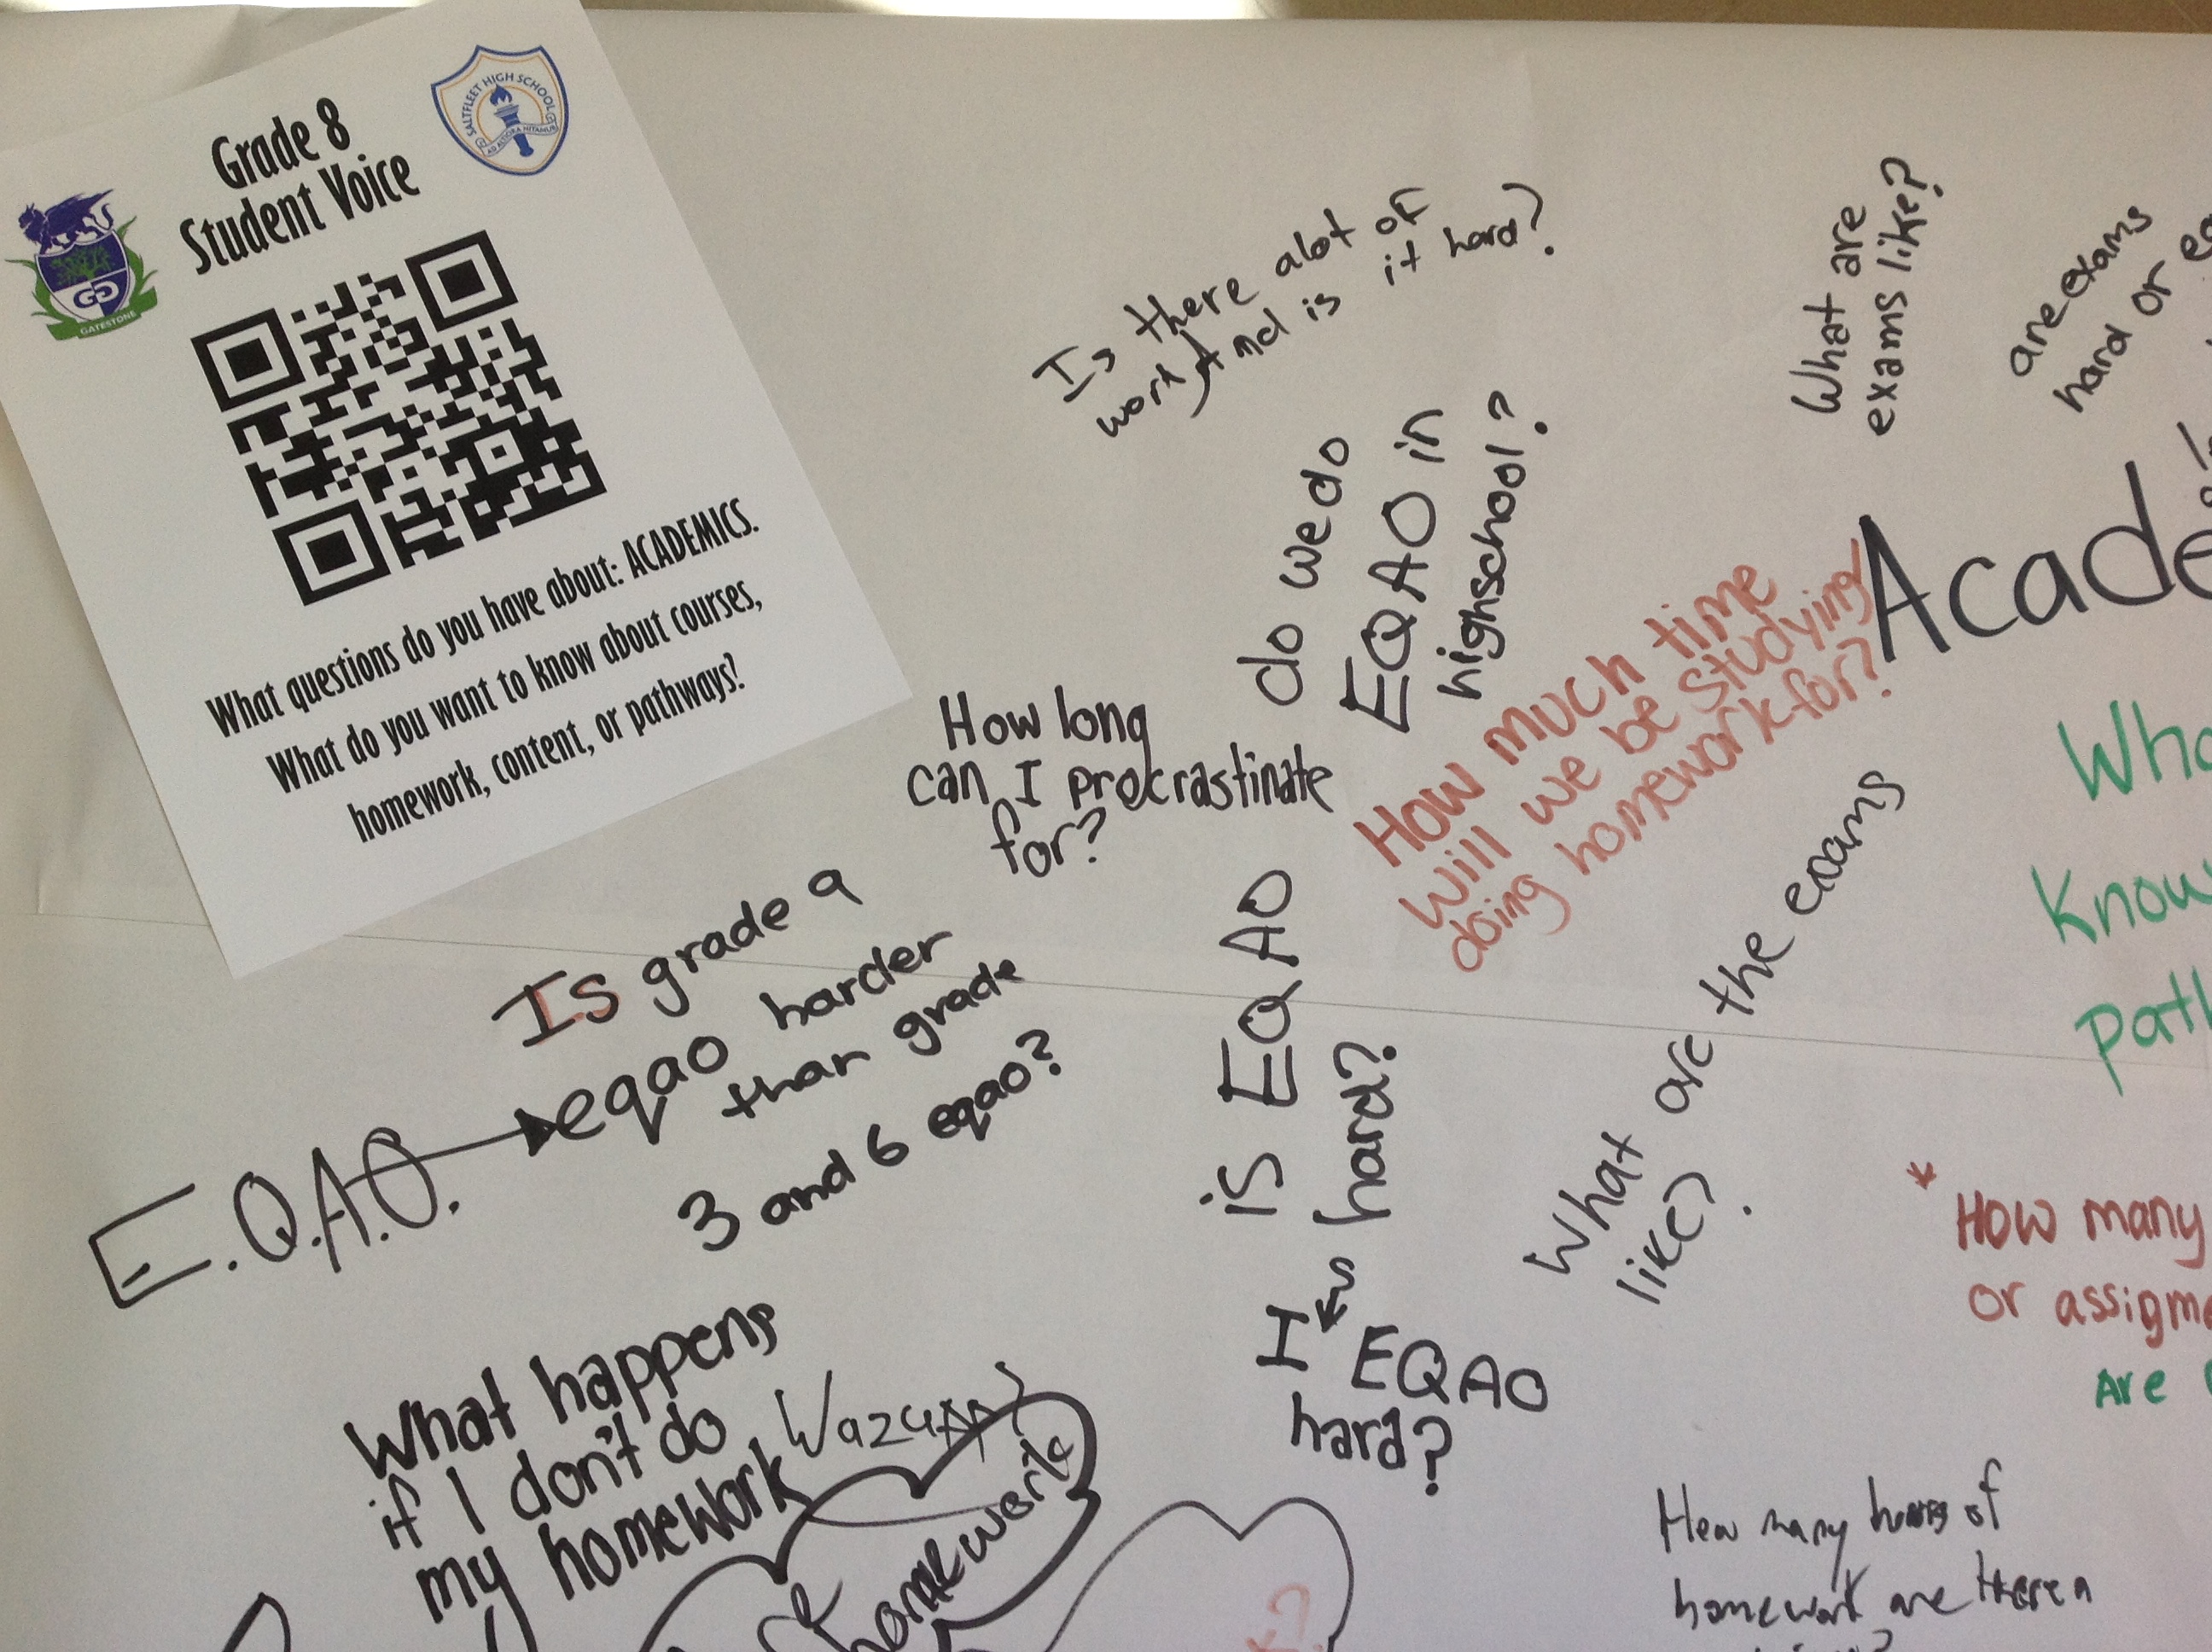 Grade 8
Student Voice
SALTFLEET HIGH SCHOOL
AD ALTIORA NITAMUR
GATESTONE
What questions do you have about: ACADEMICS.
What do you want to know about courses,
homework, content, or pathways?
Is there alot of
work And is it hard?
What are
exams like?
are exams
hard or
do we do
EQAO in
highschool?
Acade
How much time
will we be studying/
doing homework for?
How long
can I procrastinate
for?
Is grade 9
eqao harder
than grade
3 and 6 eqao?
E.Q.A.O.
is EQAO
hard?
Is EQAO
hard?
What are the exams
like?
Know
Path
* How many
or assigme
Are
What happens
if I don't do
my homework
homework
How many hours of
homework are there